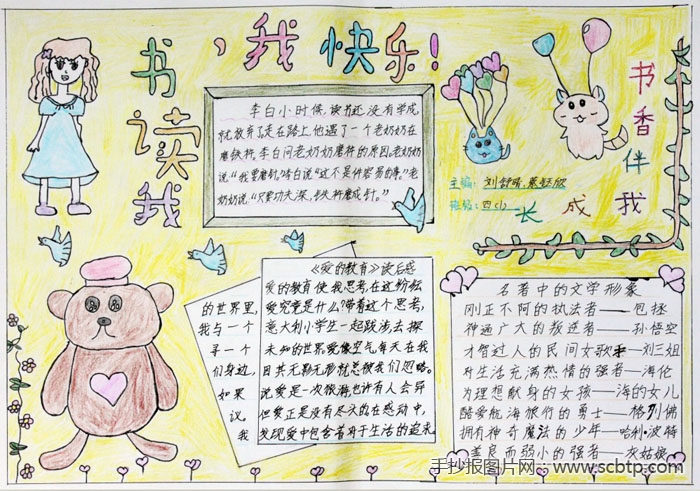 我读书，我快乐！
李白小时候,读书还没有学成
就放弃了,走在路上,他遇了一个老奶奶在
磨铁杵,李白问老奶奶磨杵的原因。老奶奶
说"我要磨针。"李白说"这不是件容易的事。"老
奶奶说:"只要功夫深,铁杵磨成针。"
主编：刘舒晴.蔡钰欣
班级：四(1)
书香伴我
成长
《爱的教育》读后感
爱的教育使我思考,在这纷纭
爱究竟是什么?带着这个思考,
意大利小学生一起跋涉去探
未知的世界.爱像空气每天在我
因其无影无形就总被我们忽略。
说爱是一次旅游,也许有人会异
但爱正是没有尽头的,在感动中,
发现爱中包含着对于生活的追求
的世界里,
我与一个
寻一个
们身边,
如果
议,
我
名著中的文学形象
刚正不阿的执法者——包拯
神通广大的叛逆者——孙悟空
才智过人的民间女歌手——刘三姐
对生活充满热情的强者——海伦
为理想献身的女孩——海的女儿
酷爱航海旅行的勇士——格列佛
拥有神奇魔法的少年——哈利·波特
善良而弱小的强者——灰姑娘
手抄报图片网：www.scbtp.com